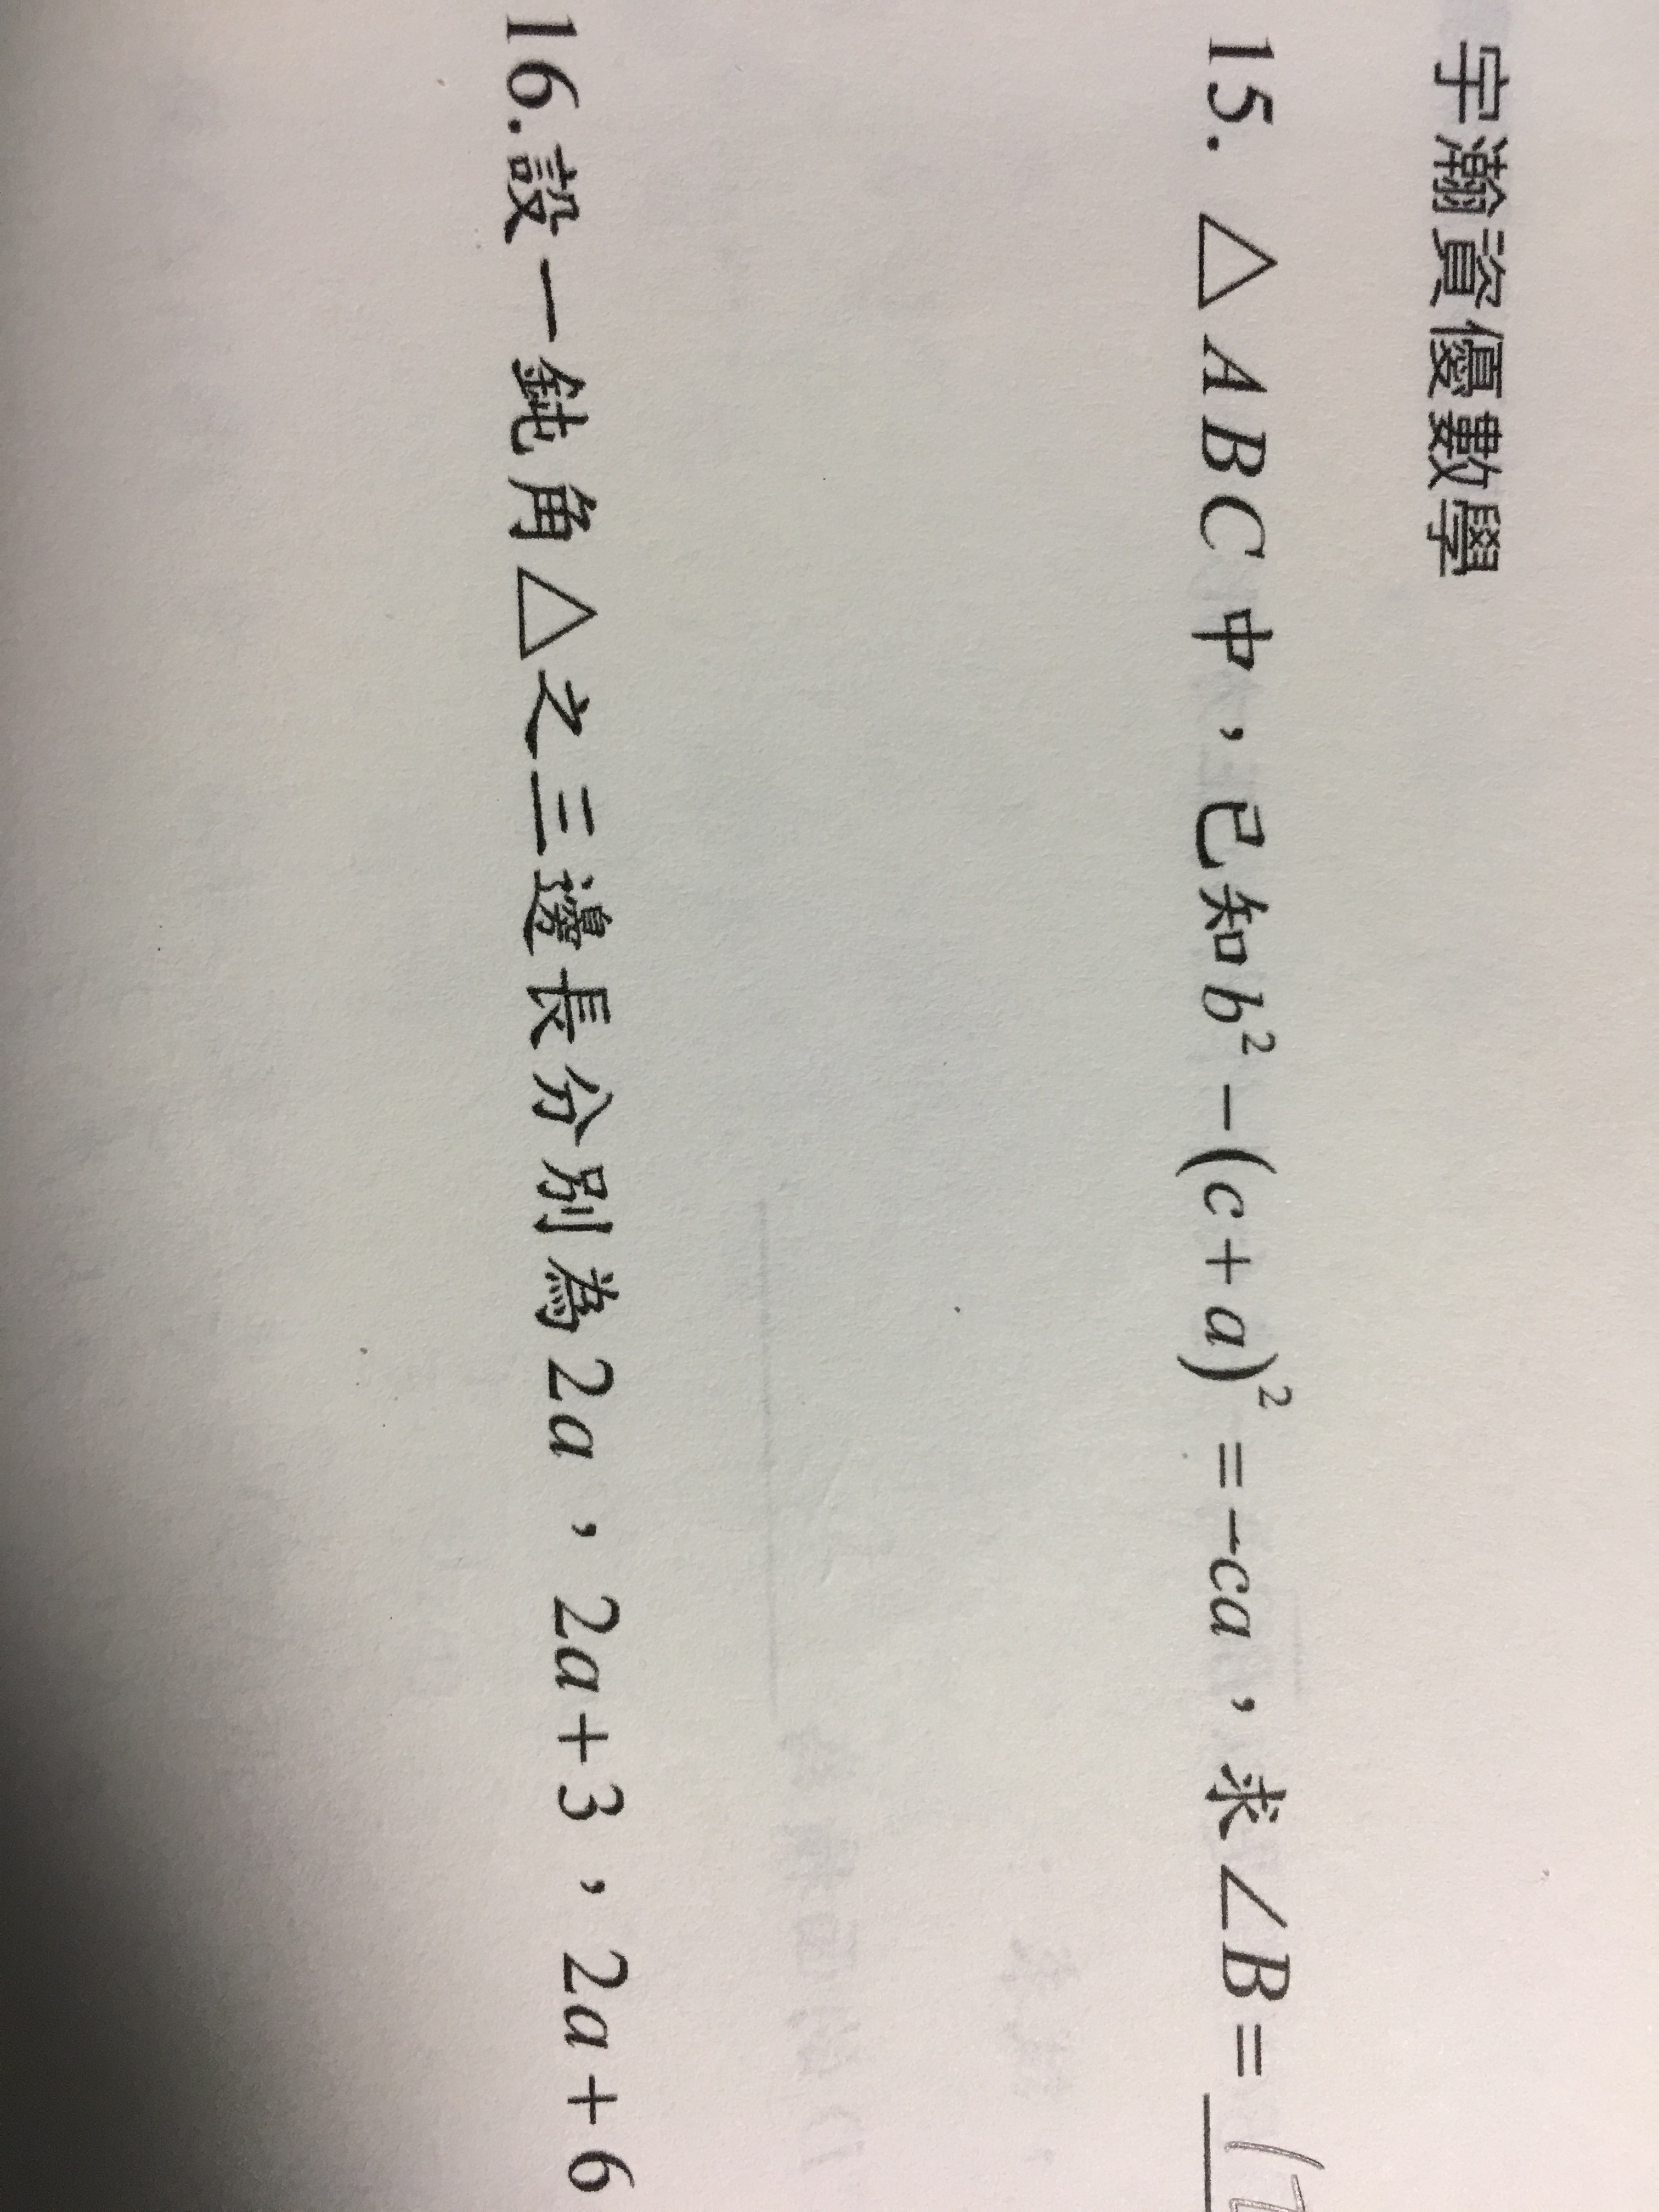 宇瀚資優數學
15. △ABC中，已知b²−(c+a)²=−ca，求∠B=
16.設一鈍角△之三邊長分別為2a，2a+3，2a+6